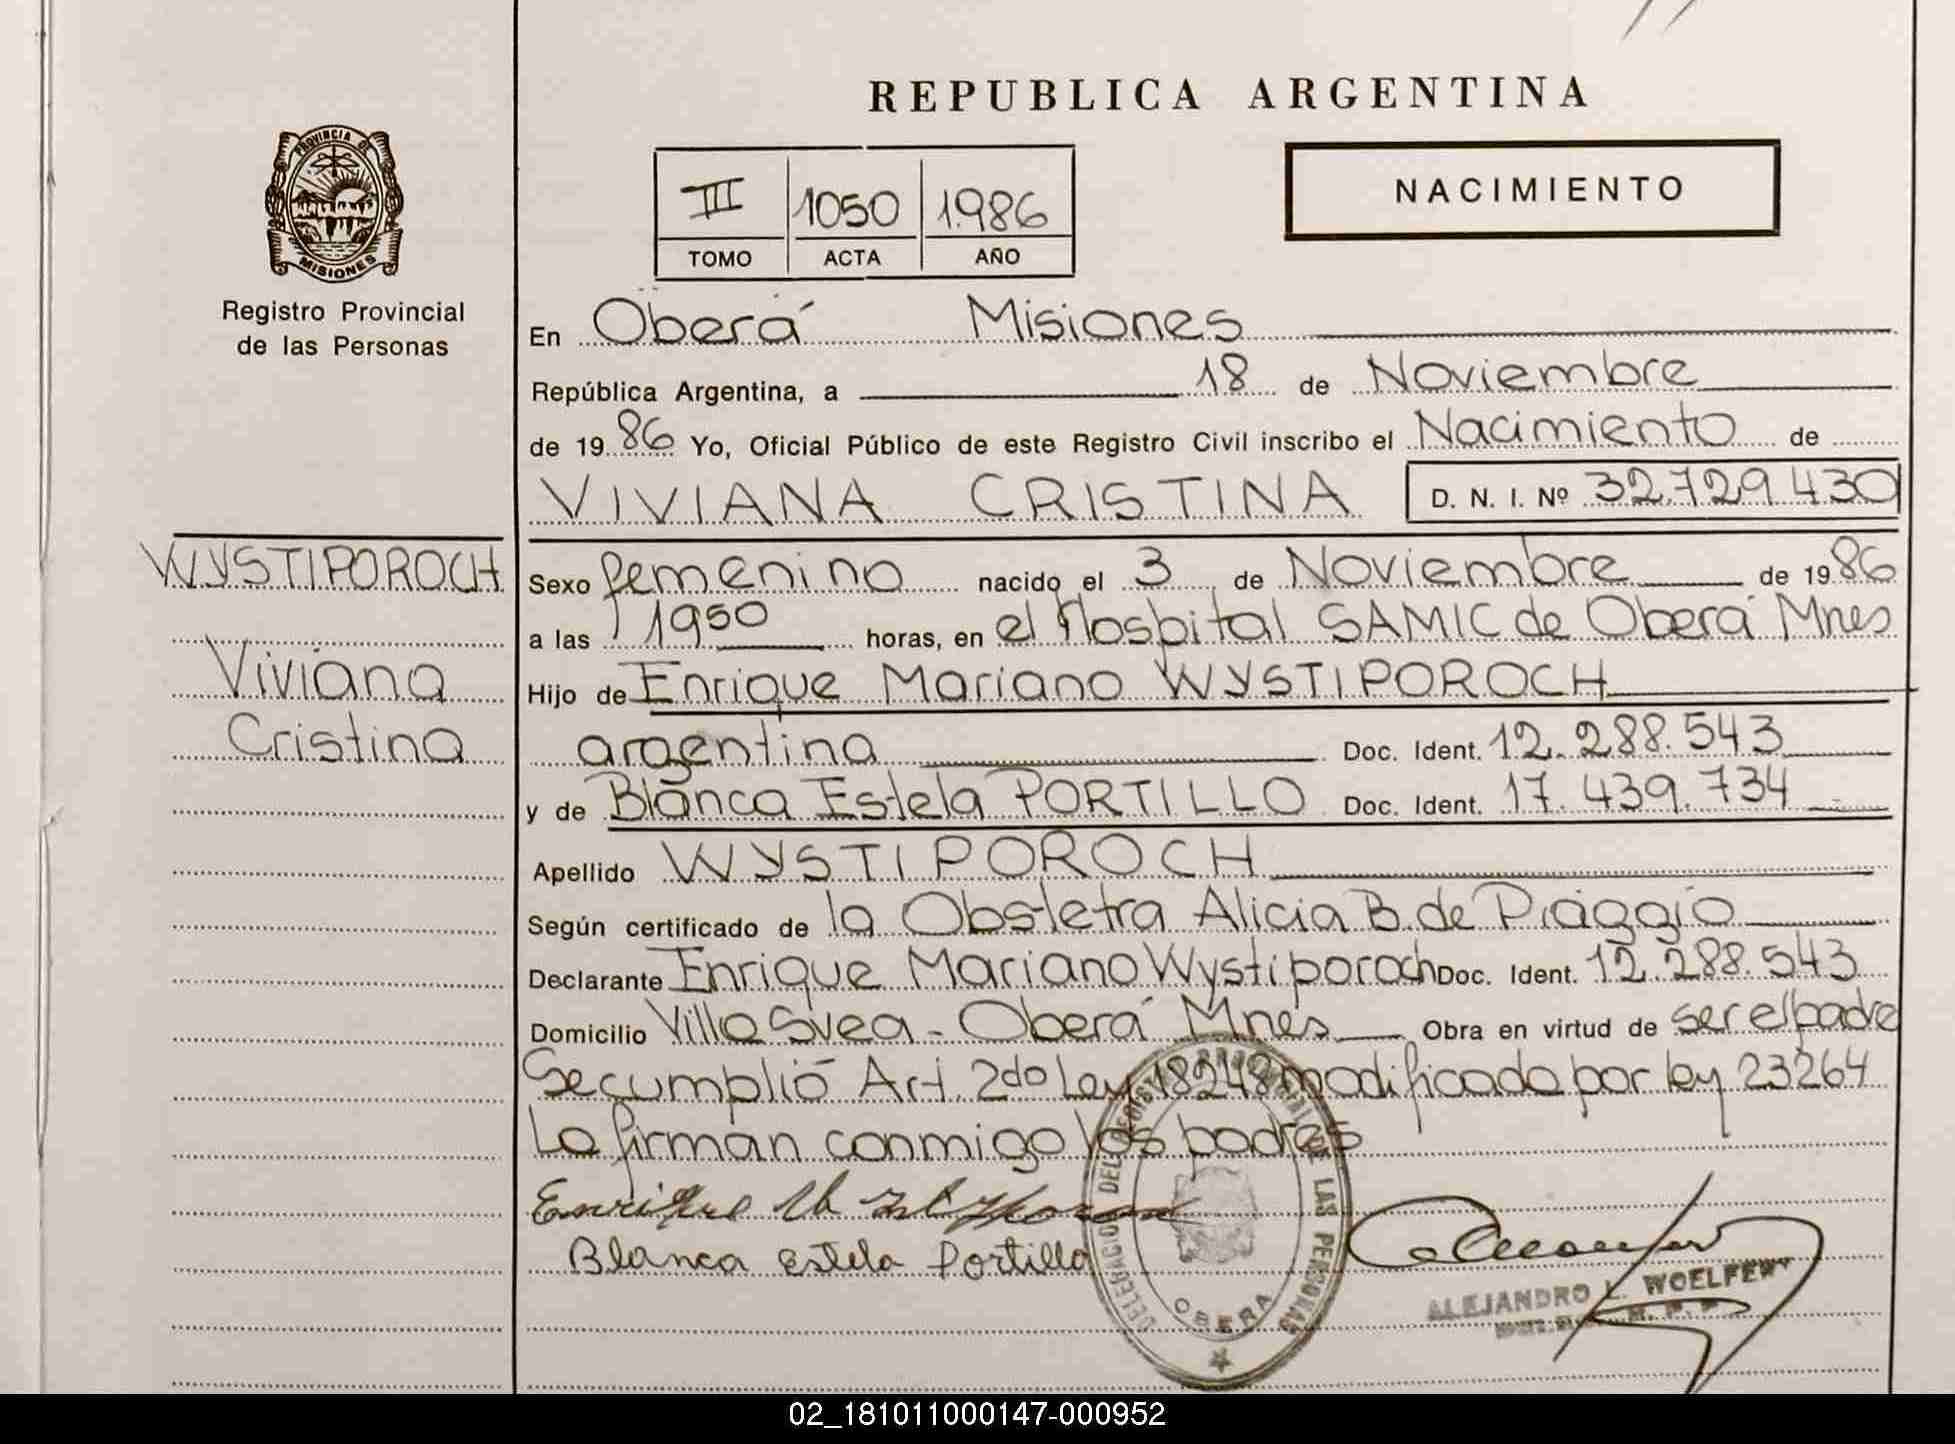 REPUBLICA ARGENTINA
PROVINCIA DE
MISIONES
Registro Provincial
de las Personas
III 1050 1.986
TOMO ACTA AÑO
NACIMIENTO
En Oberá Misiones
República Argentina, a 18 de Noviembre
de 19 86 Yo, Oficial Público de este Registro Civil inscribo el Nacimiento de
VIVIANA CRISTINA D. N. I. Nº 32.729.430
WYSTIPOROCH
Viviana
Cristina
Sexo femenino nacido el 3 de Noviembre de 19 86
a las 1950 horas, en el Hospital SAMIC de Oberá Mnes
Hijo de Enrique Mariano WYSTIPOROCH
argentina Doc. Ident. 12.288.543
y de Blanca Estela PORTILLO Doc. Ident. 17.439.734
Apellido WYSTIPOROCH
Según certificado de la Obstetra Alicia B. de Piaggio
Declarante Enrique Mariano Wystiporoch Doc. Ident. 12.288.543
Domicilio Villa Svea - Oberá Mnes Obra en virtud de ser el padre
Se cumplió Art. 2do Ley 18248 modificado por ley 23264
Lo firman conmigo los padres
Enrique
Blanca Estela Portillo
DELEGACIO DEL REGISTRO PROVINCIAL DE LAS PERSONAS
OBERA
ALEJANDRO L. WOELFERT
02_181011000147-000952